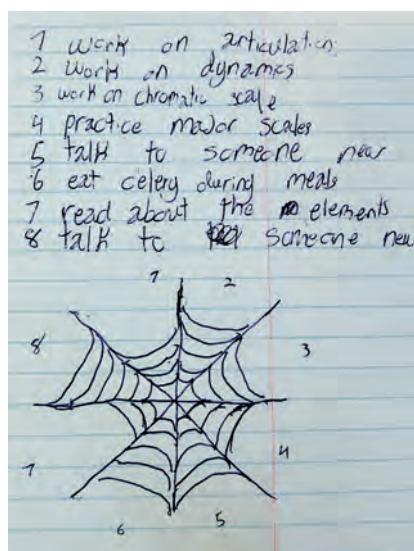 1 work on articulation
2 work on dynamics
3 work on chromatic scale
4 practice major scales
5 talk to someone new
6 eat celery during meals
7 read about the elements
8 talk to someone new
1 2
8 3
7 4
6 5